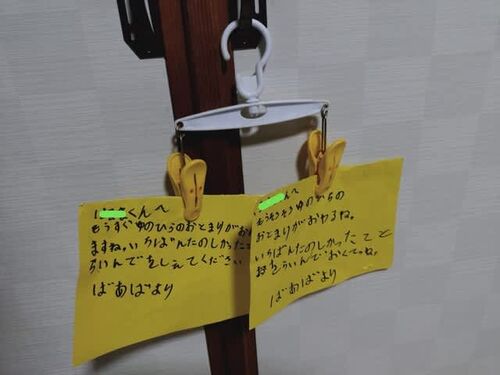 くんへ
もうすぐ中のひらのおとまりがおわり
ますね。いちばんたのしかったこと
らいんでをしえてください
ばあばより
んへ
もうそろそろ中のひらの
おとまりがおわるね。
いちばんたのしかったこと
おをらいんでおくってね。
ばあばより